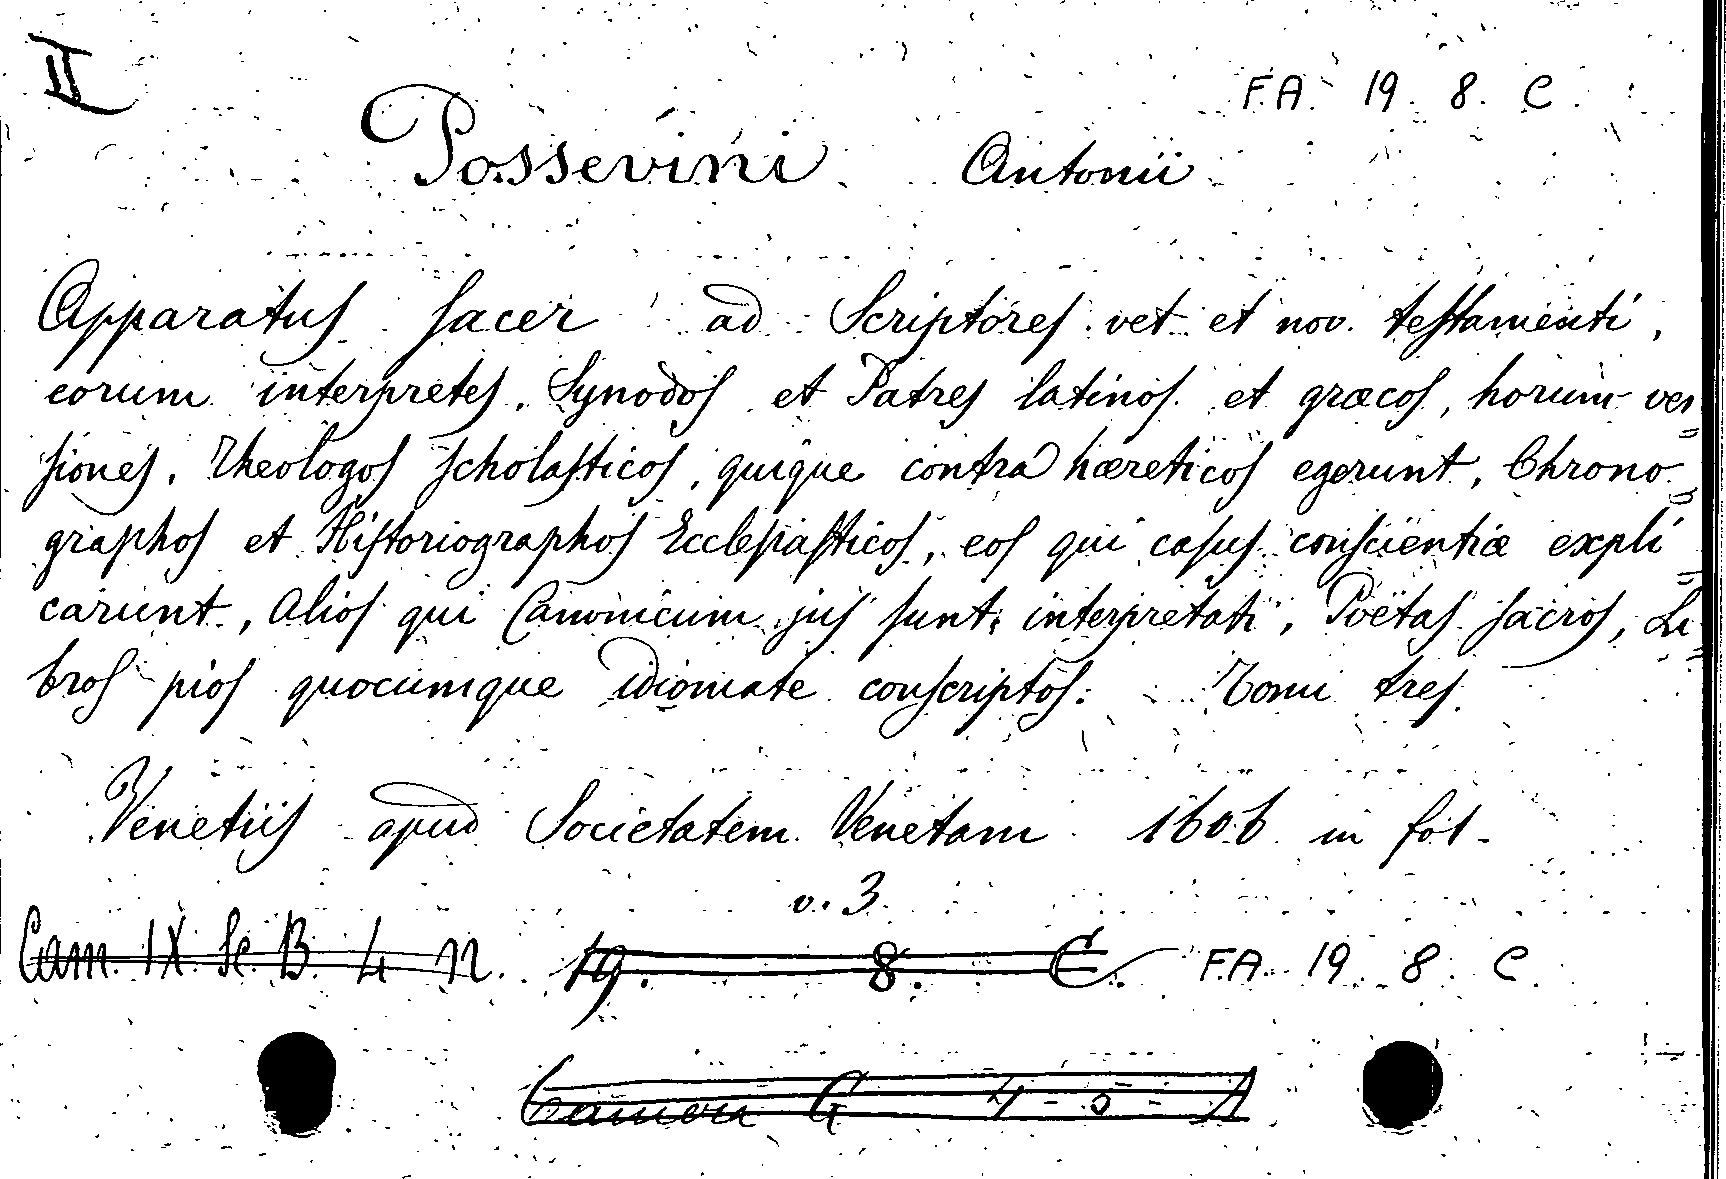 II
F.A. 19. 8. C.
Possevini Antonii
Apparatus sacer ad Scriptores vet. et nov. testamenti,
eorum interpretes, Synodos et Patres latinos et græcos, horum ver
siones, Theologos scholasticos, quique contra hæreticos egerunt, Chrono
graphos et Historiographos Ecclesiasticos, eos qui casus conscientiæ expli
carunt, Alios qui Canonicum jus sunt interpretati, Poëtas sacros, Li
bros pios quocumque idiomate conscriptos: Tomi tres.
Venetiis apud Societatem Venetam 1606 in fol.
v. 3.
Cam. IX Sc. B. 4 n. 19. 8. C. F.A. 19. 8. C.
G 4 - 5 - A